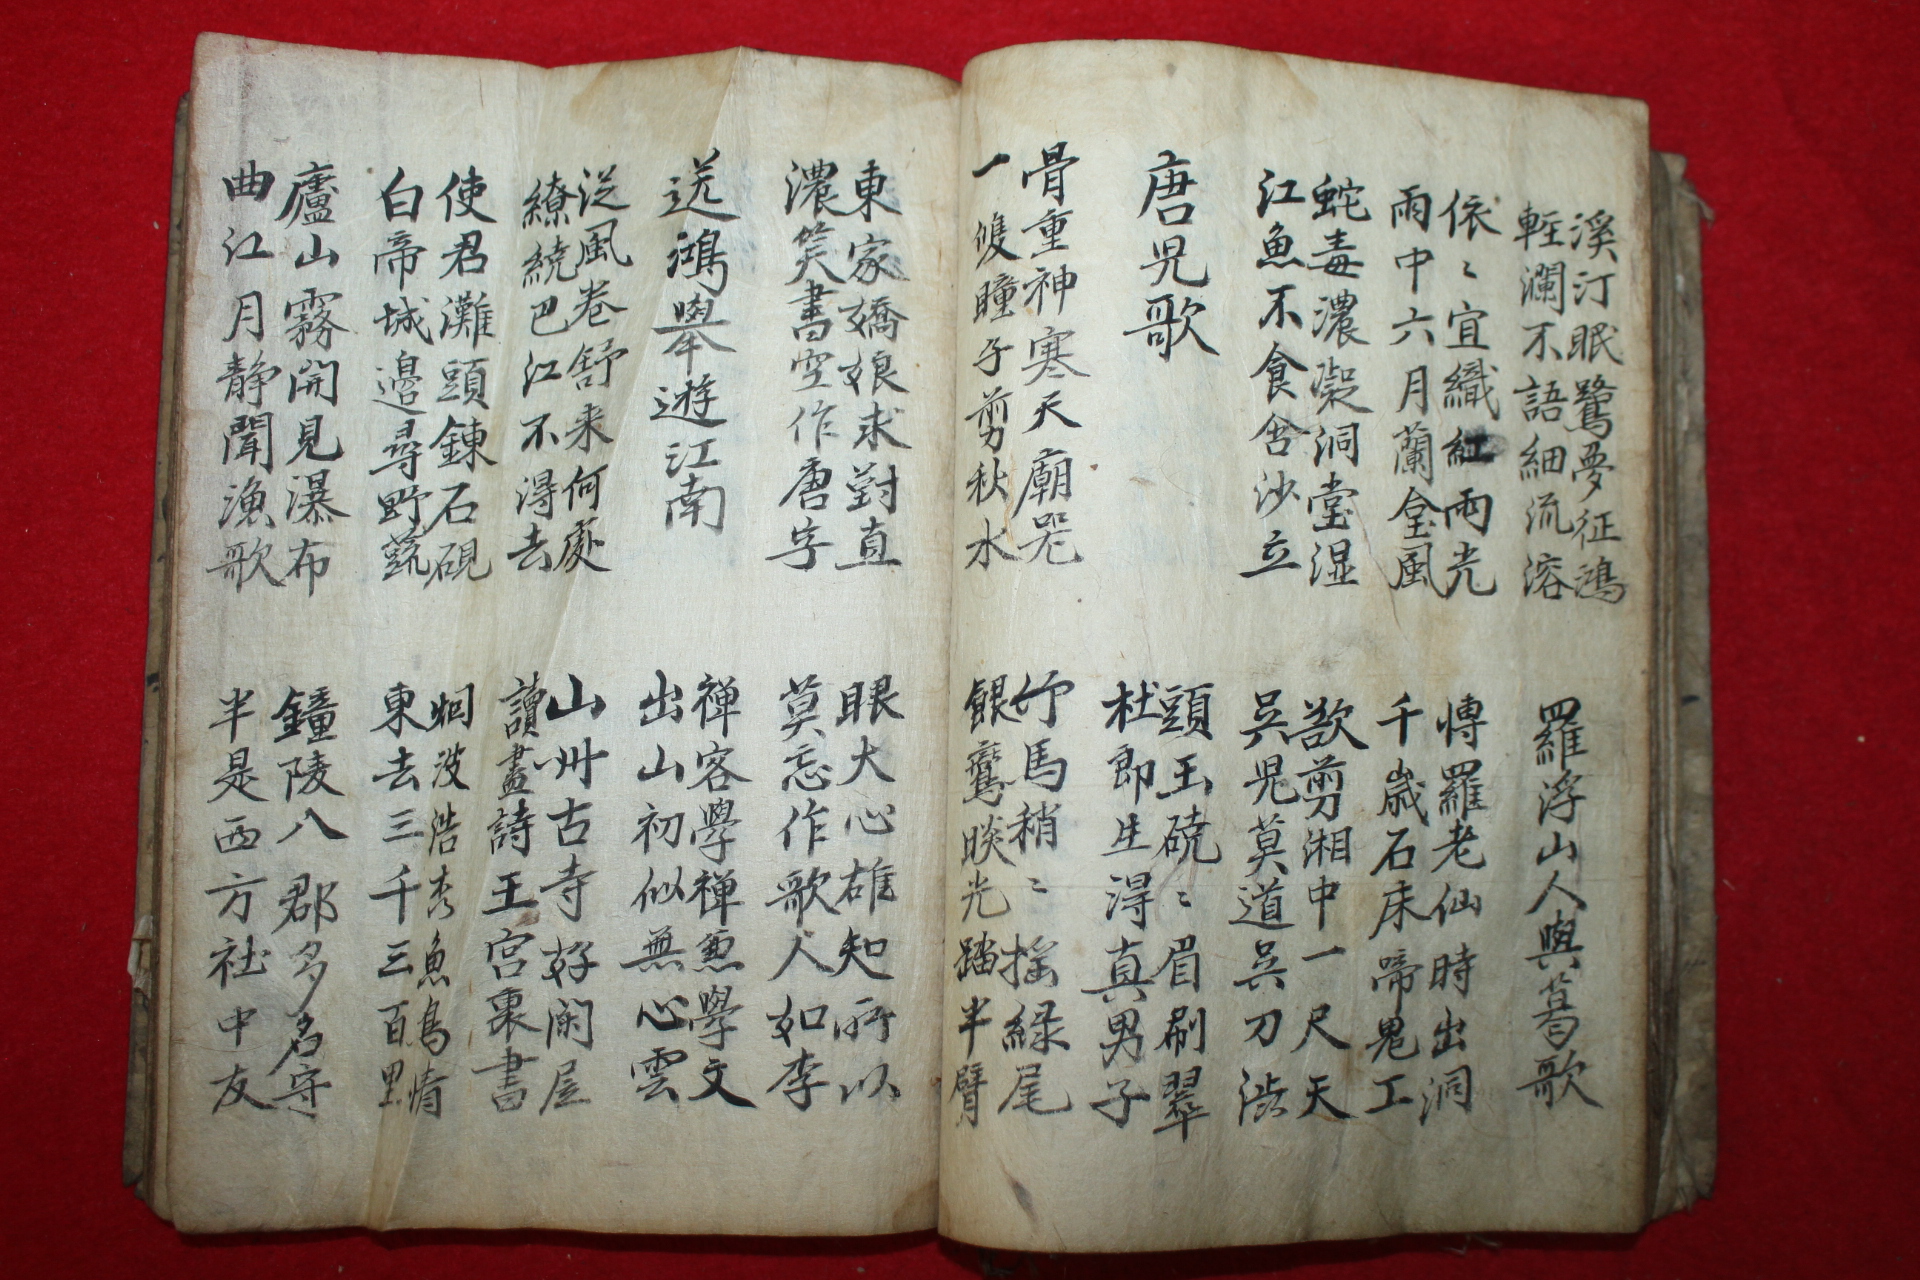 溪汀眠鷺夢征鴻
輕瀾不語細流溶
羅浮山人與葛歌
依〻宜織紅雨光
雨中六月蘭臺風
博羅老仙時出洞
千歲石床啼鬼工
蛇毒濃凝洞堂湿
江魚不食含沙立
欲剪湘中一尺天
吳兒莫道吳刀澁
唐児歌
頭玉磽〻眉刷翠
杜郎生得真男子
骨重神寒天廟器
一雙瞳子剪秋水
竹馬稍〻搖綠尾
銀鸞睒光踏半臂
東家嬌娘求對直
濃笑書空作唐字
眼大心雄知所以
莫忘作歌人如李
送鴻舉遊江南
禪客學禪兼學文
出山初似無心雲
從風卷舒来何處
繚繞巴江不得去
山州古寺好閑居
讀盡詩王宮裏書
使君灘頭鍊石硯
白帝城邊尋野蔬
烟波浩杳魚鳥情
東去三千三百里
廬山霧開見瀑布
曲江月静聞漁歌
鐘陵八郡多名守
半是西方社中友